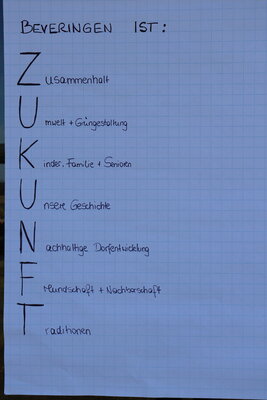 BEVERINGEN IST:
Zusammenhalt
Umwelt + Grüngestaltung
Kinder, Familie + Senioren
Unsere Geschichte
Nachhaltige Dorfentwicklung
Freundschaft + Nachbarschaft
Traditionen